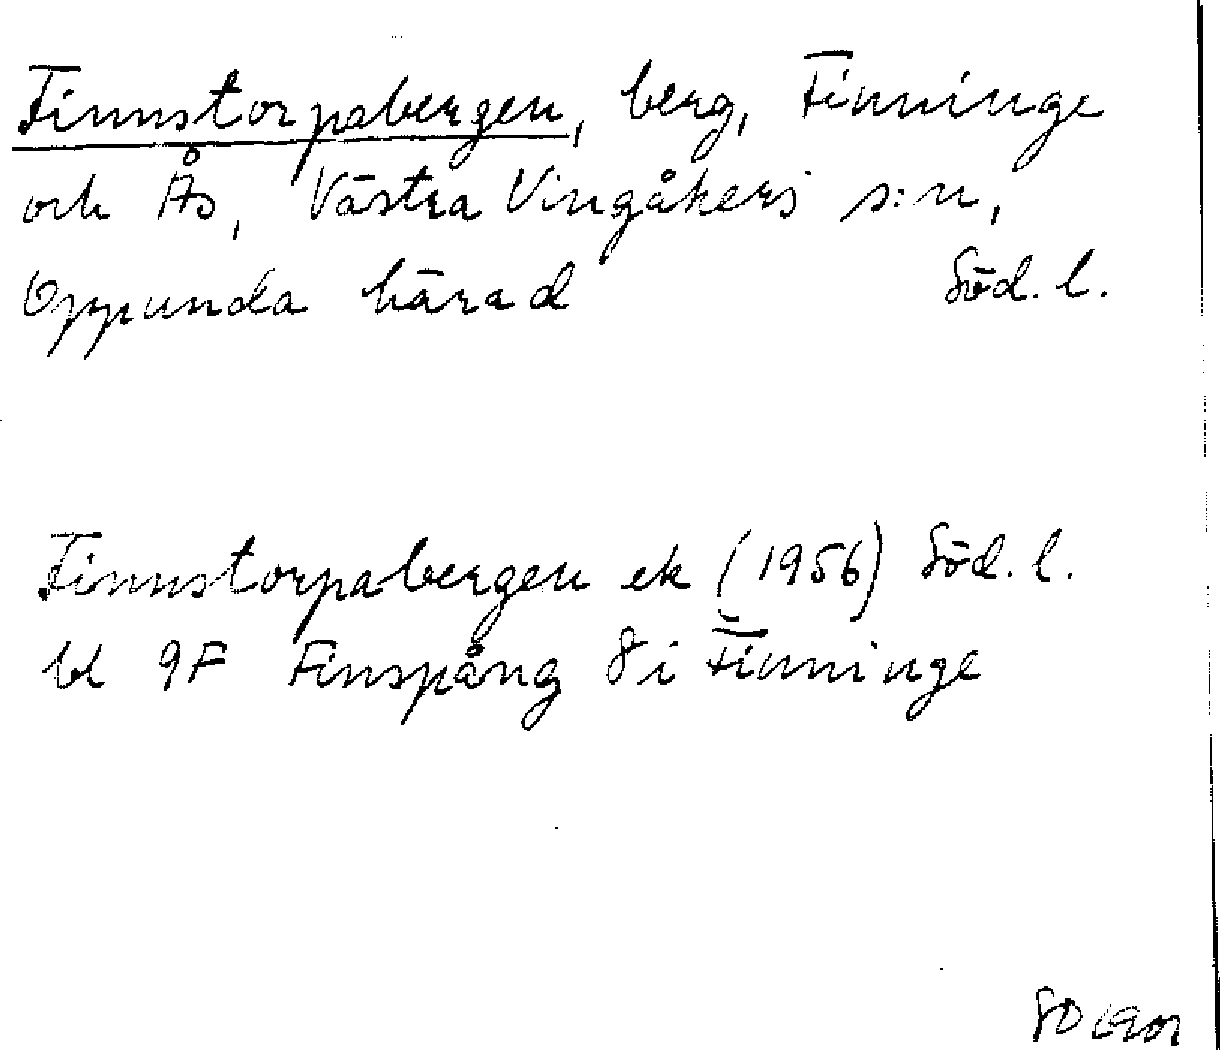 Finnstorpabergen, berg, Finninge
och Ås, Västra Vingåkers s:n,
Oppunda härad Söd. l.
Finnstorpabergen ek (1956) Söd. l.
bl 9F Finspång 8i Finninge